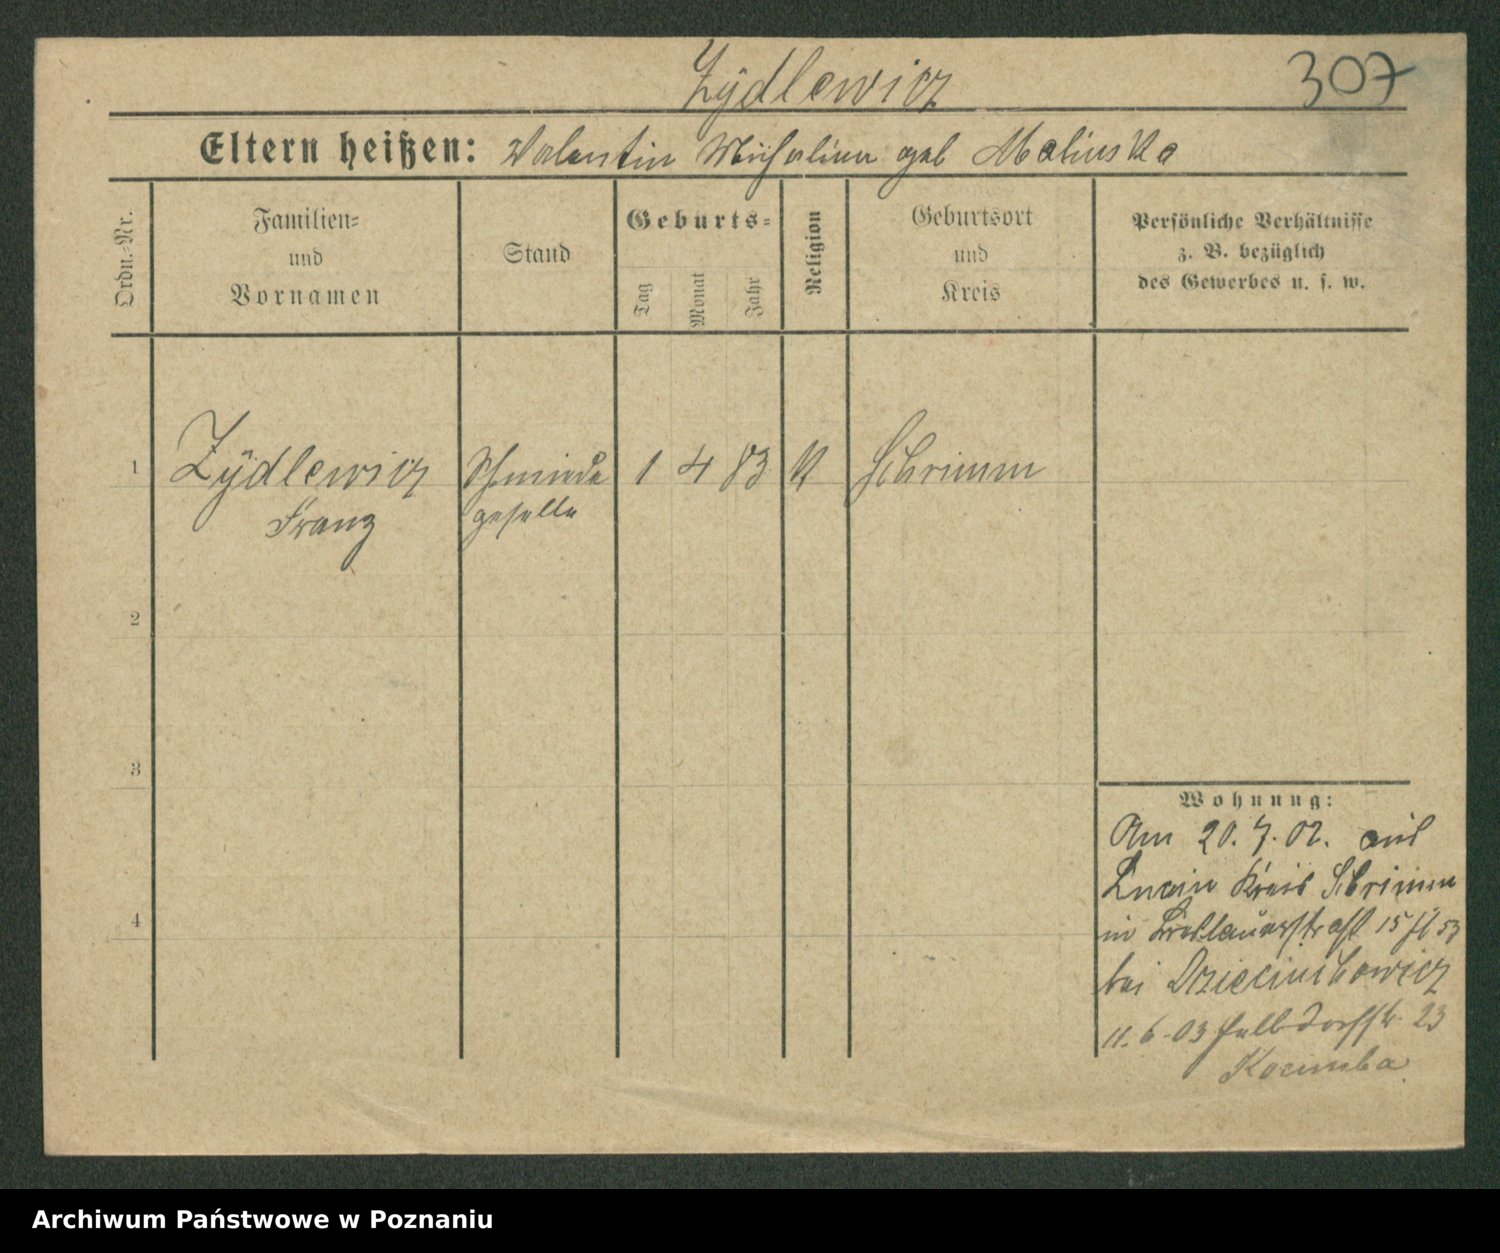 Zÿdlewicz
307
Eltern heißen: Valentin Michalina geb Malinska
Ordn.-Nr.
Familien-
und
Vornamen
Stand
Geburts-
Tag
Monat
Jahr
Religion
Geburtsort
und
Kreis
Persönliche Verhältnisse
z. B. bezüglich
des Gewerbes u. s. w.
1
Zÿdlewicz
Franz
Schmiede
geselle
1 4 83 K Schrimm
2
3
4
Wohnung:
Am 20. 7. 02. aus
Kreis Schrimm
in Breslauerstraße 15
bei
11. 6. 03 Halbdorfstr. 23
Archiwum Państwowe w Poznaniu